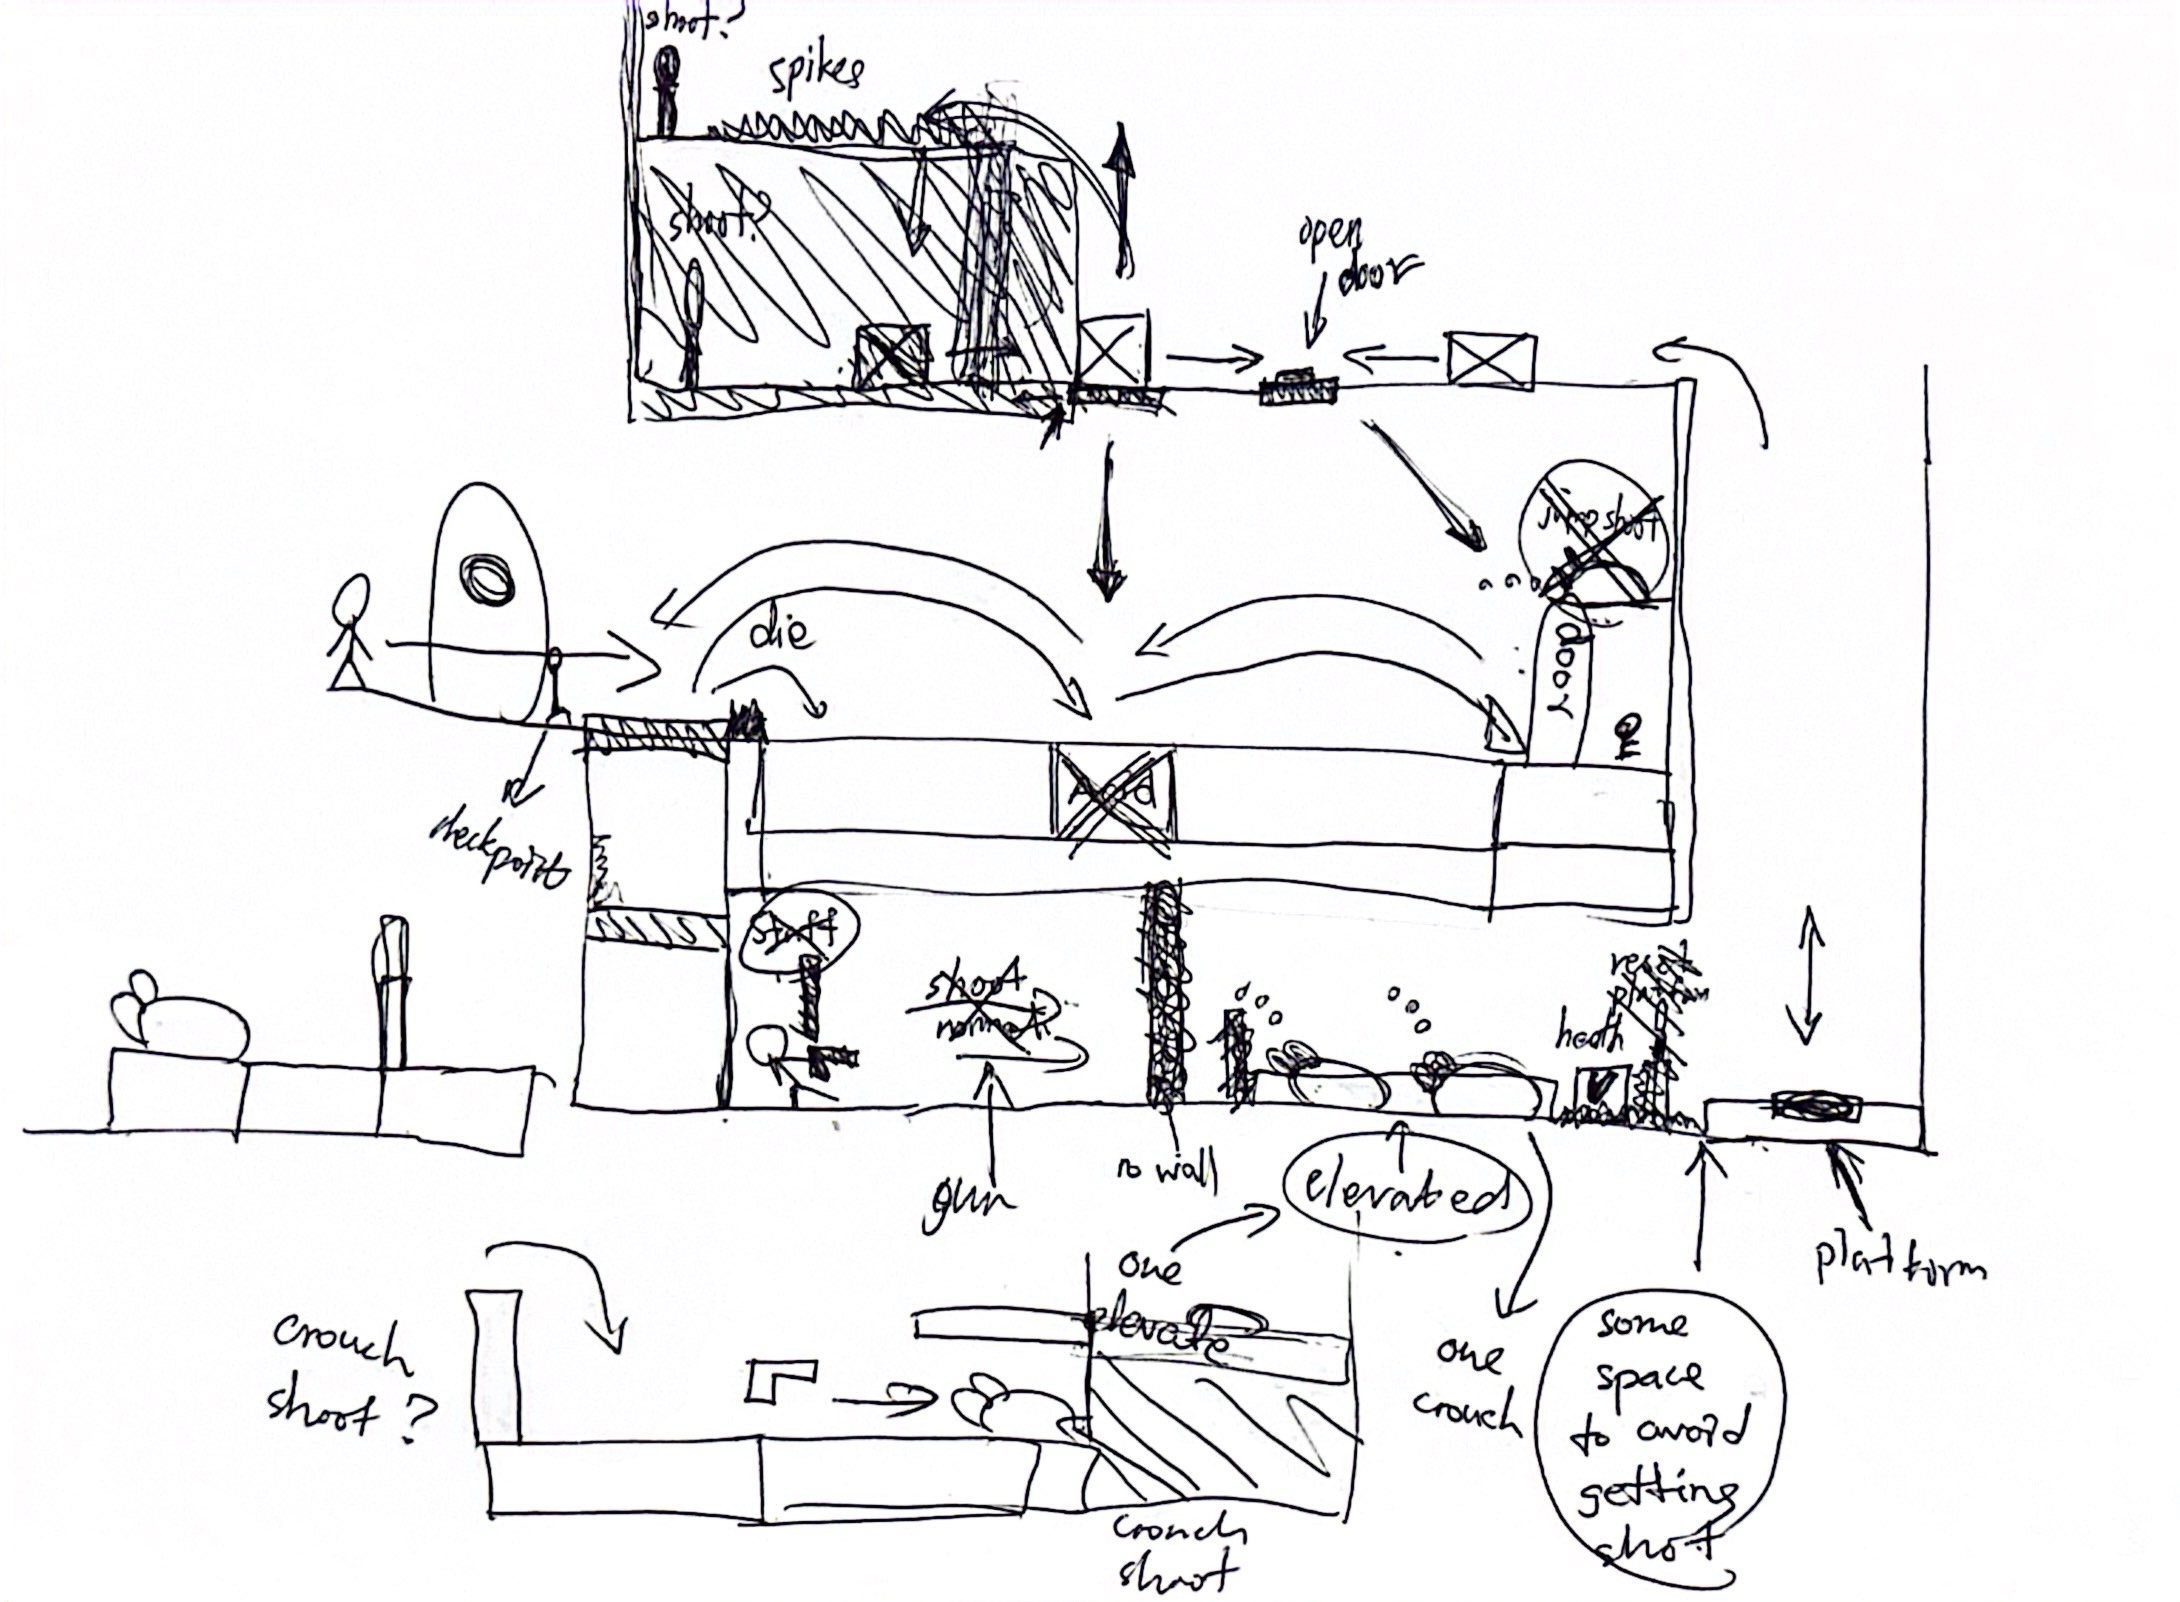 shoot?
spikes
shoot?
open
door
jump shoot
die
door
Acid
check
point
staff
shoot
normal
reset
platform
health
gun
no wall
elevated
platform
one
elevate
crouch
shoot?
one
crouch
some
space
to avoid
getting
shot
crouch
shoot